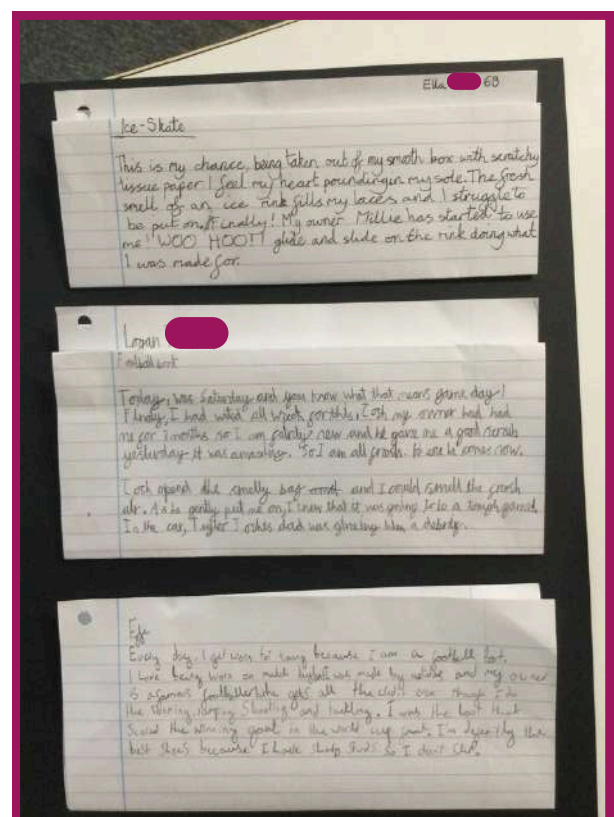 Ella 6B
Ice-Skate
This is my chance, being taken out of my smooth box with scratchy
tissue paper I feel my heart pounding in my sole. The fresh
smell of an ice rink fills my laces and I struggle to
be put on. Finally! My owner Millie has started to use
me! "WOO HOO!" glide and slide on the rink doing what
I was made for.
Logan
Football boot
Today, was Saturday and you know what that means game day!
I had all week for this, my owner had had
me for 7 months so I am fairly new and he gave me a good scrub
yesterday it was amazing. So I am all fresh. he comes now.
the smelly bag and I could smell the fresh
air. As he gently put me on, I knew that it was going to be a tough
In the car, dad was him a
Every day, I get worn to because I am a football boot.
I love being worn on match made by and my owner
is a famous footballer gets all the even though I do
the running, jumping shooting and tackling. I was the boot that
scored the winning goal in the world cup I'm definitely the
best shoes because I have sharp studs so I don't slip.